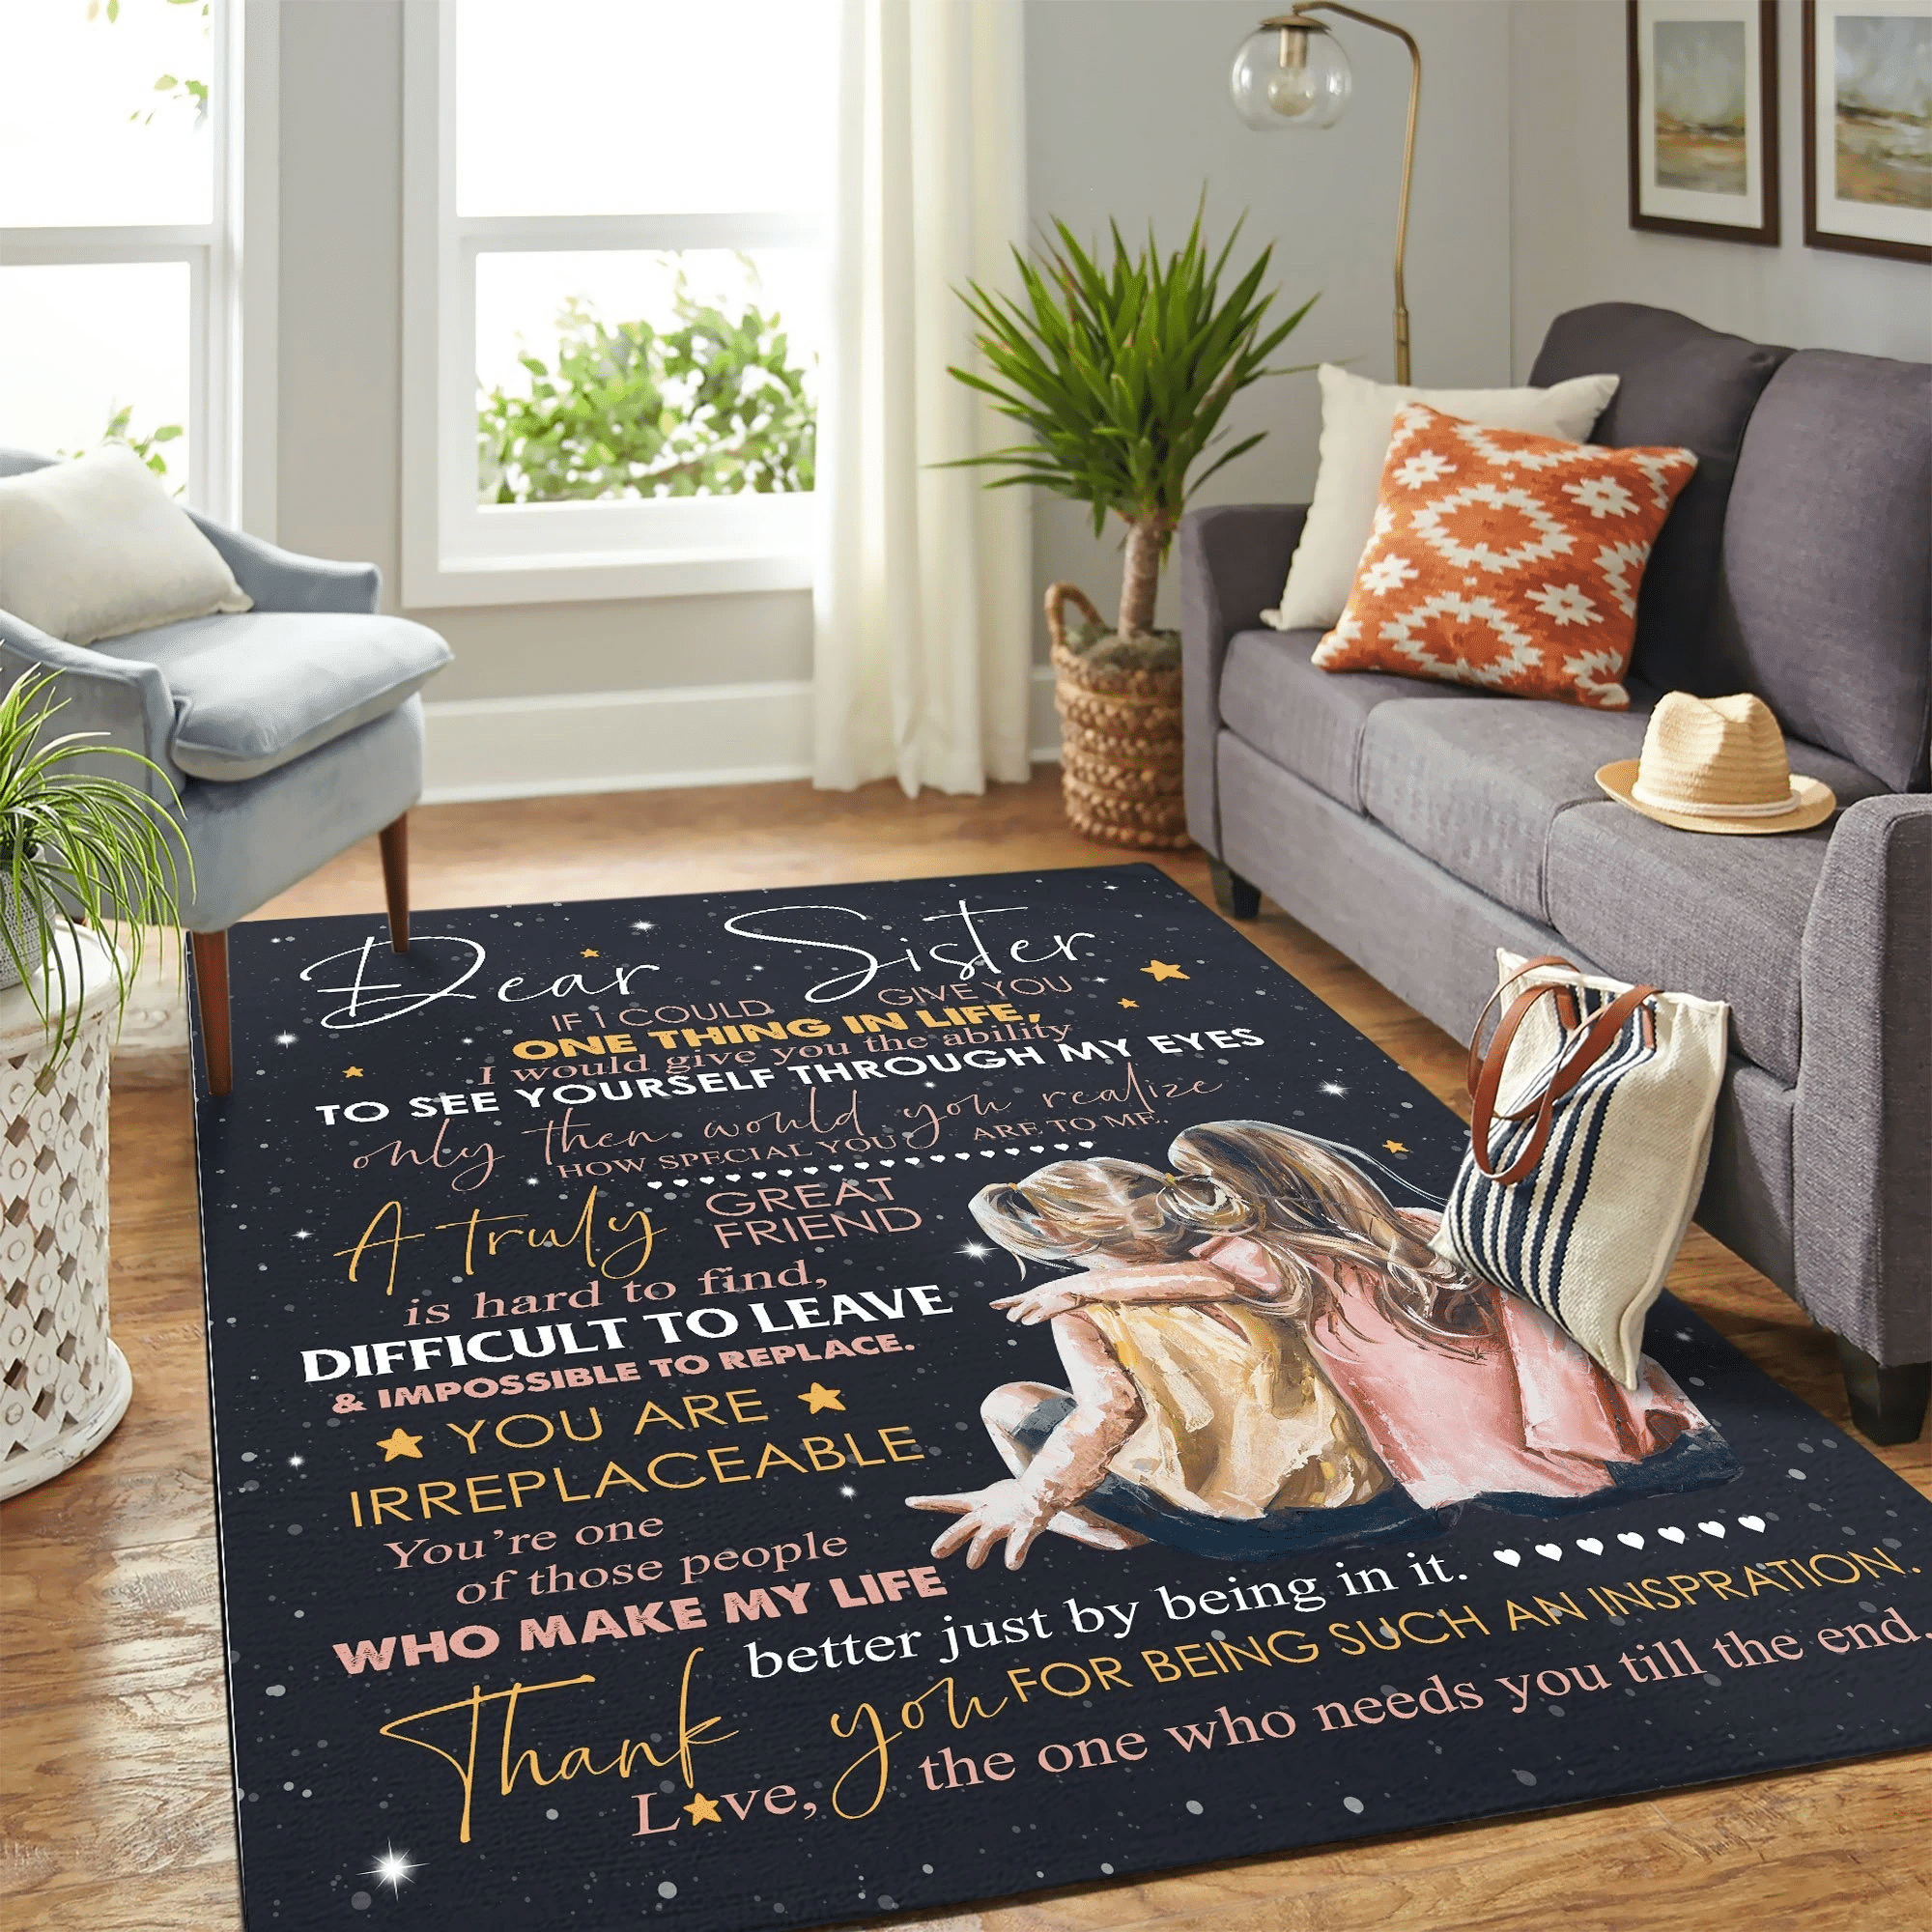 Dear Sister
IF I COULD GIVE YOU
ONE THING IN LIFE,
I would give you the ability
TO SEE YOURSELF THROUGH MY EYES
only then would you realize
HOW SPECIAL YOU ARE TO ME.
A truly GREAT
FRIEND
is hard to find,
DIFFICULT TO LEAVE
& IMPOSSIBLE TO REPLACE.
YOU ARE
IRREPLACEABLE
You're one
of those people
WHO MAKE MY LIFE
better just by being in it.
Thank you FOR BEING SUCH AN INSPRATION.
Love, the one who needs you till the end.